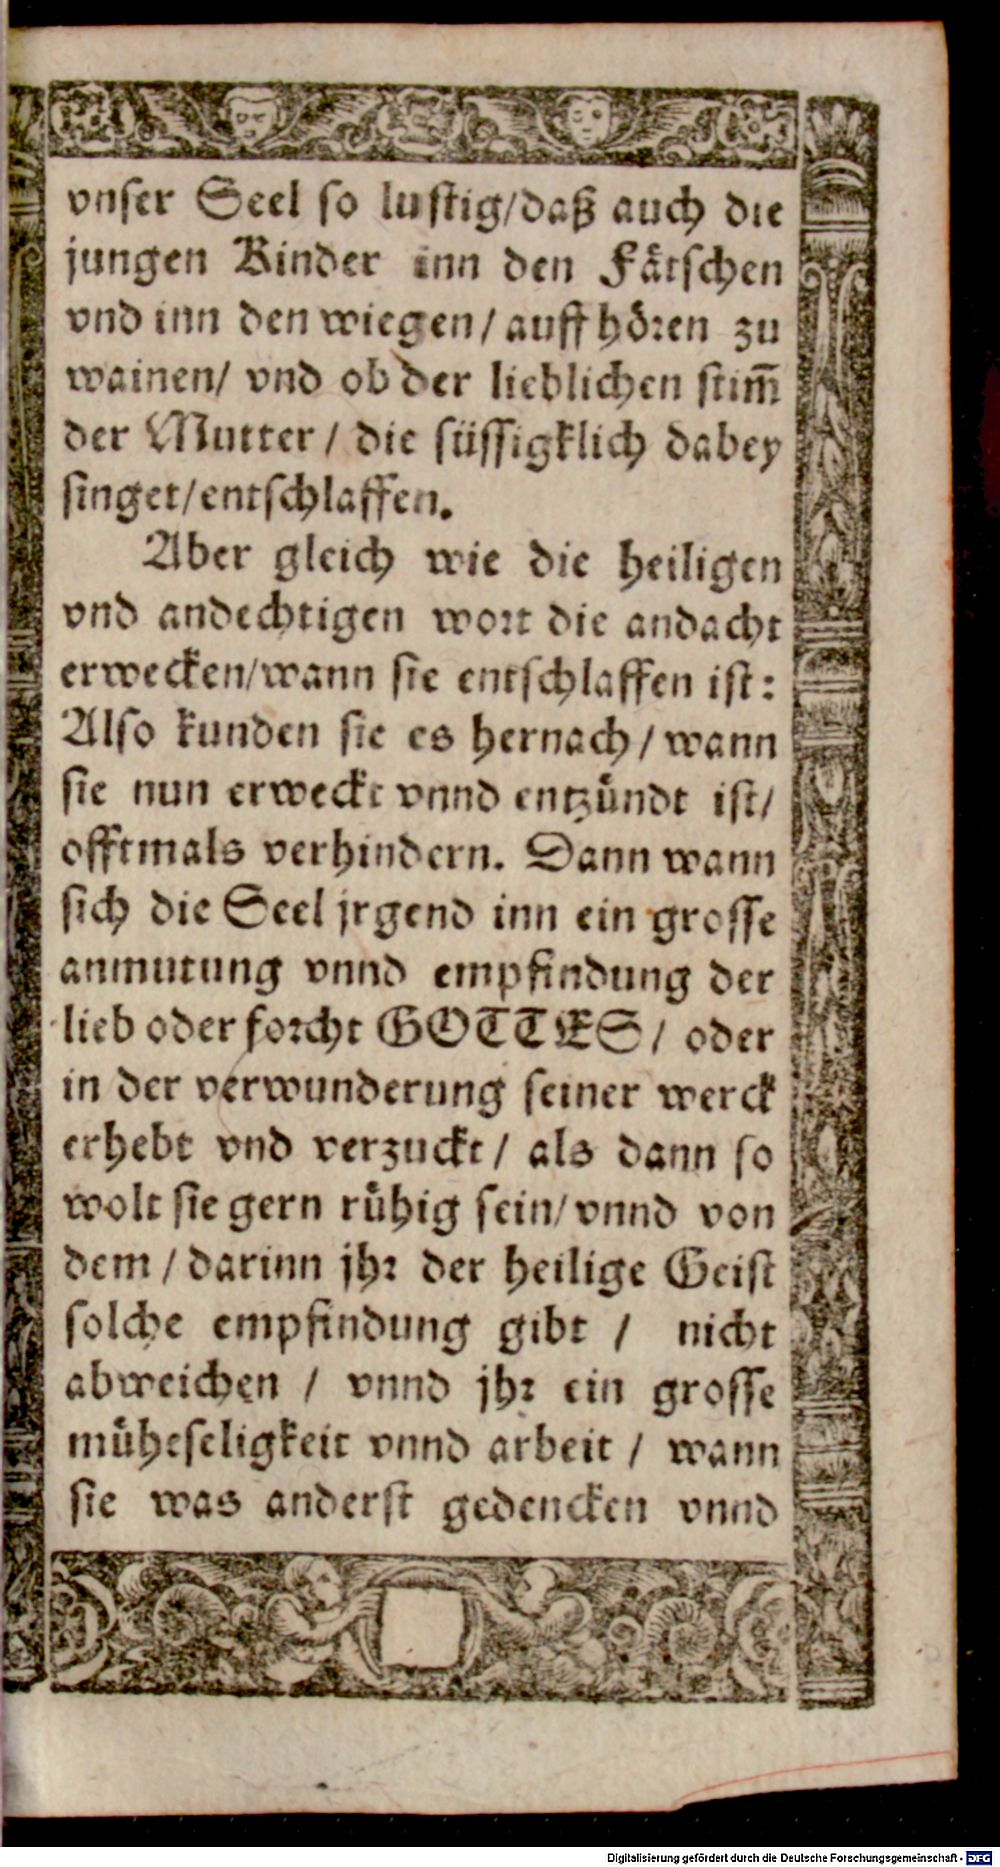 vnser Seel so lustig/daß auch die
jungen Kinder inn den Fåtschen
vnd inn den wiegen/ auff hören zu
wainen/ vnd ob der lieblichen stim̃
der Mutter / die süssigklich dabey
singet/entschlaffen.
Aber gleich wie die heiligen
vnd andechtigen wort die andacht
erwecken/wann sie entschlaffen ist:
Also kunden sie es hernach/ wann
sie nun erweckt vnnd entzündt ist/
offtmals verhindern. Dann wann
sich die Seel jrgend inn ein grosse
anmutung vnnd empfindung der
lieb oder forcht GOTTES/ oder
in der verwunderung seiner werck
erhebt vnd verzuckt/ als dann so
wolt sie gern rühig sein/ vnnd von
dem / darinn jhr der heilige Geist
solche empfindung gibt / nicht
abweichen / vnnd jhr ein grosse
müheseligkeit vnnd arbeit / wann
sie was anderst gedencken vnnd
Digitalisierung gefördert durch die Deutsche Forschungsgemeinschaft - DFG